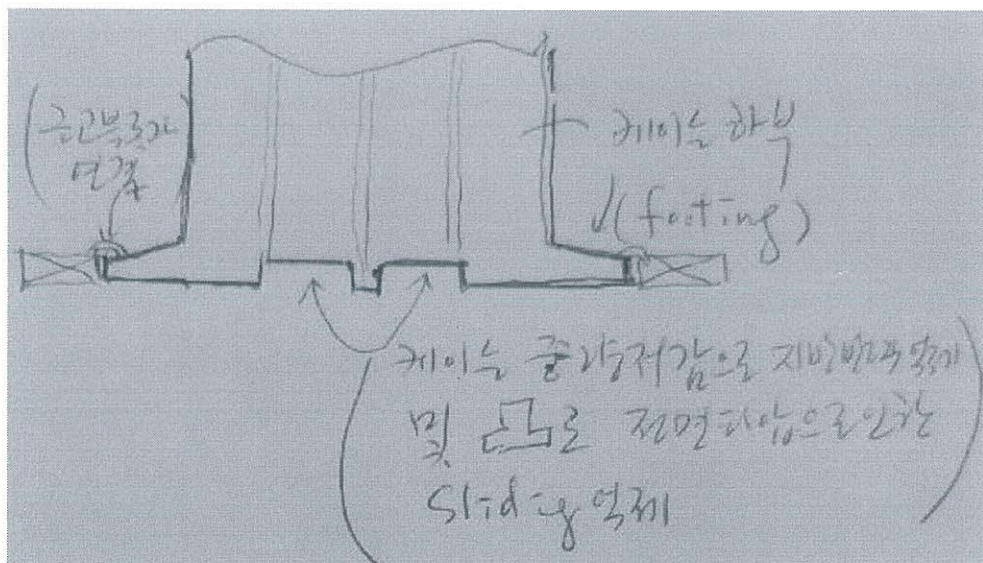 (근고블록과
연결)
케이슨 하부
(footing)
(케이슨 중량저감으로 지반반력
및 凸로 전면파압으로인한
Sliding 억제)